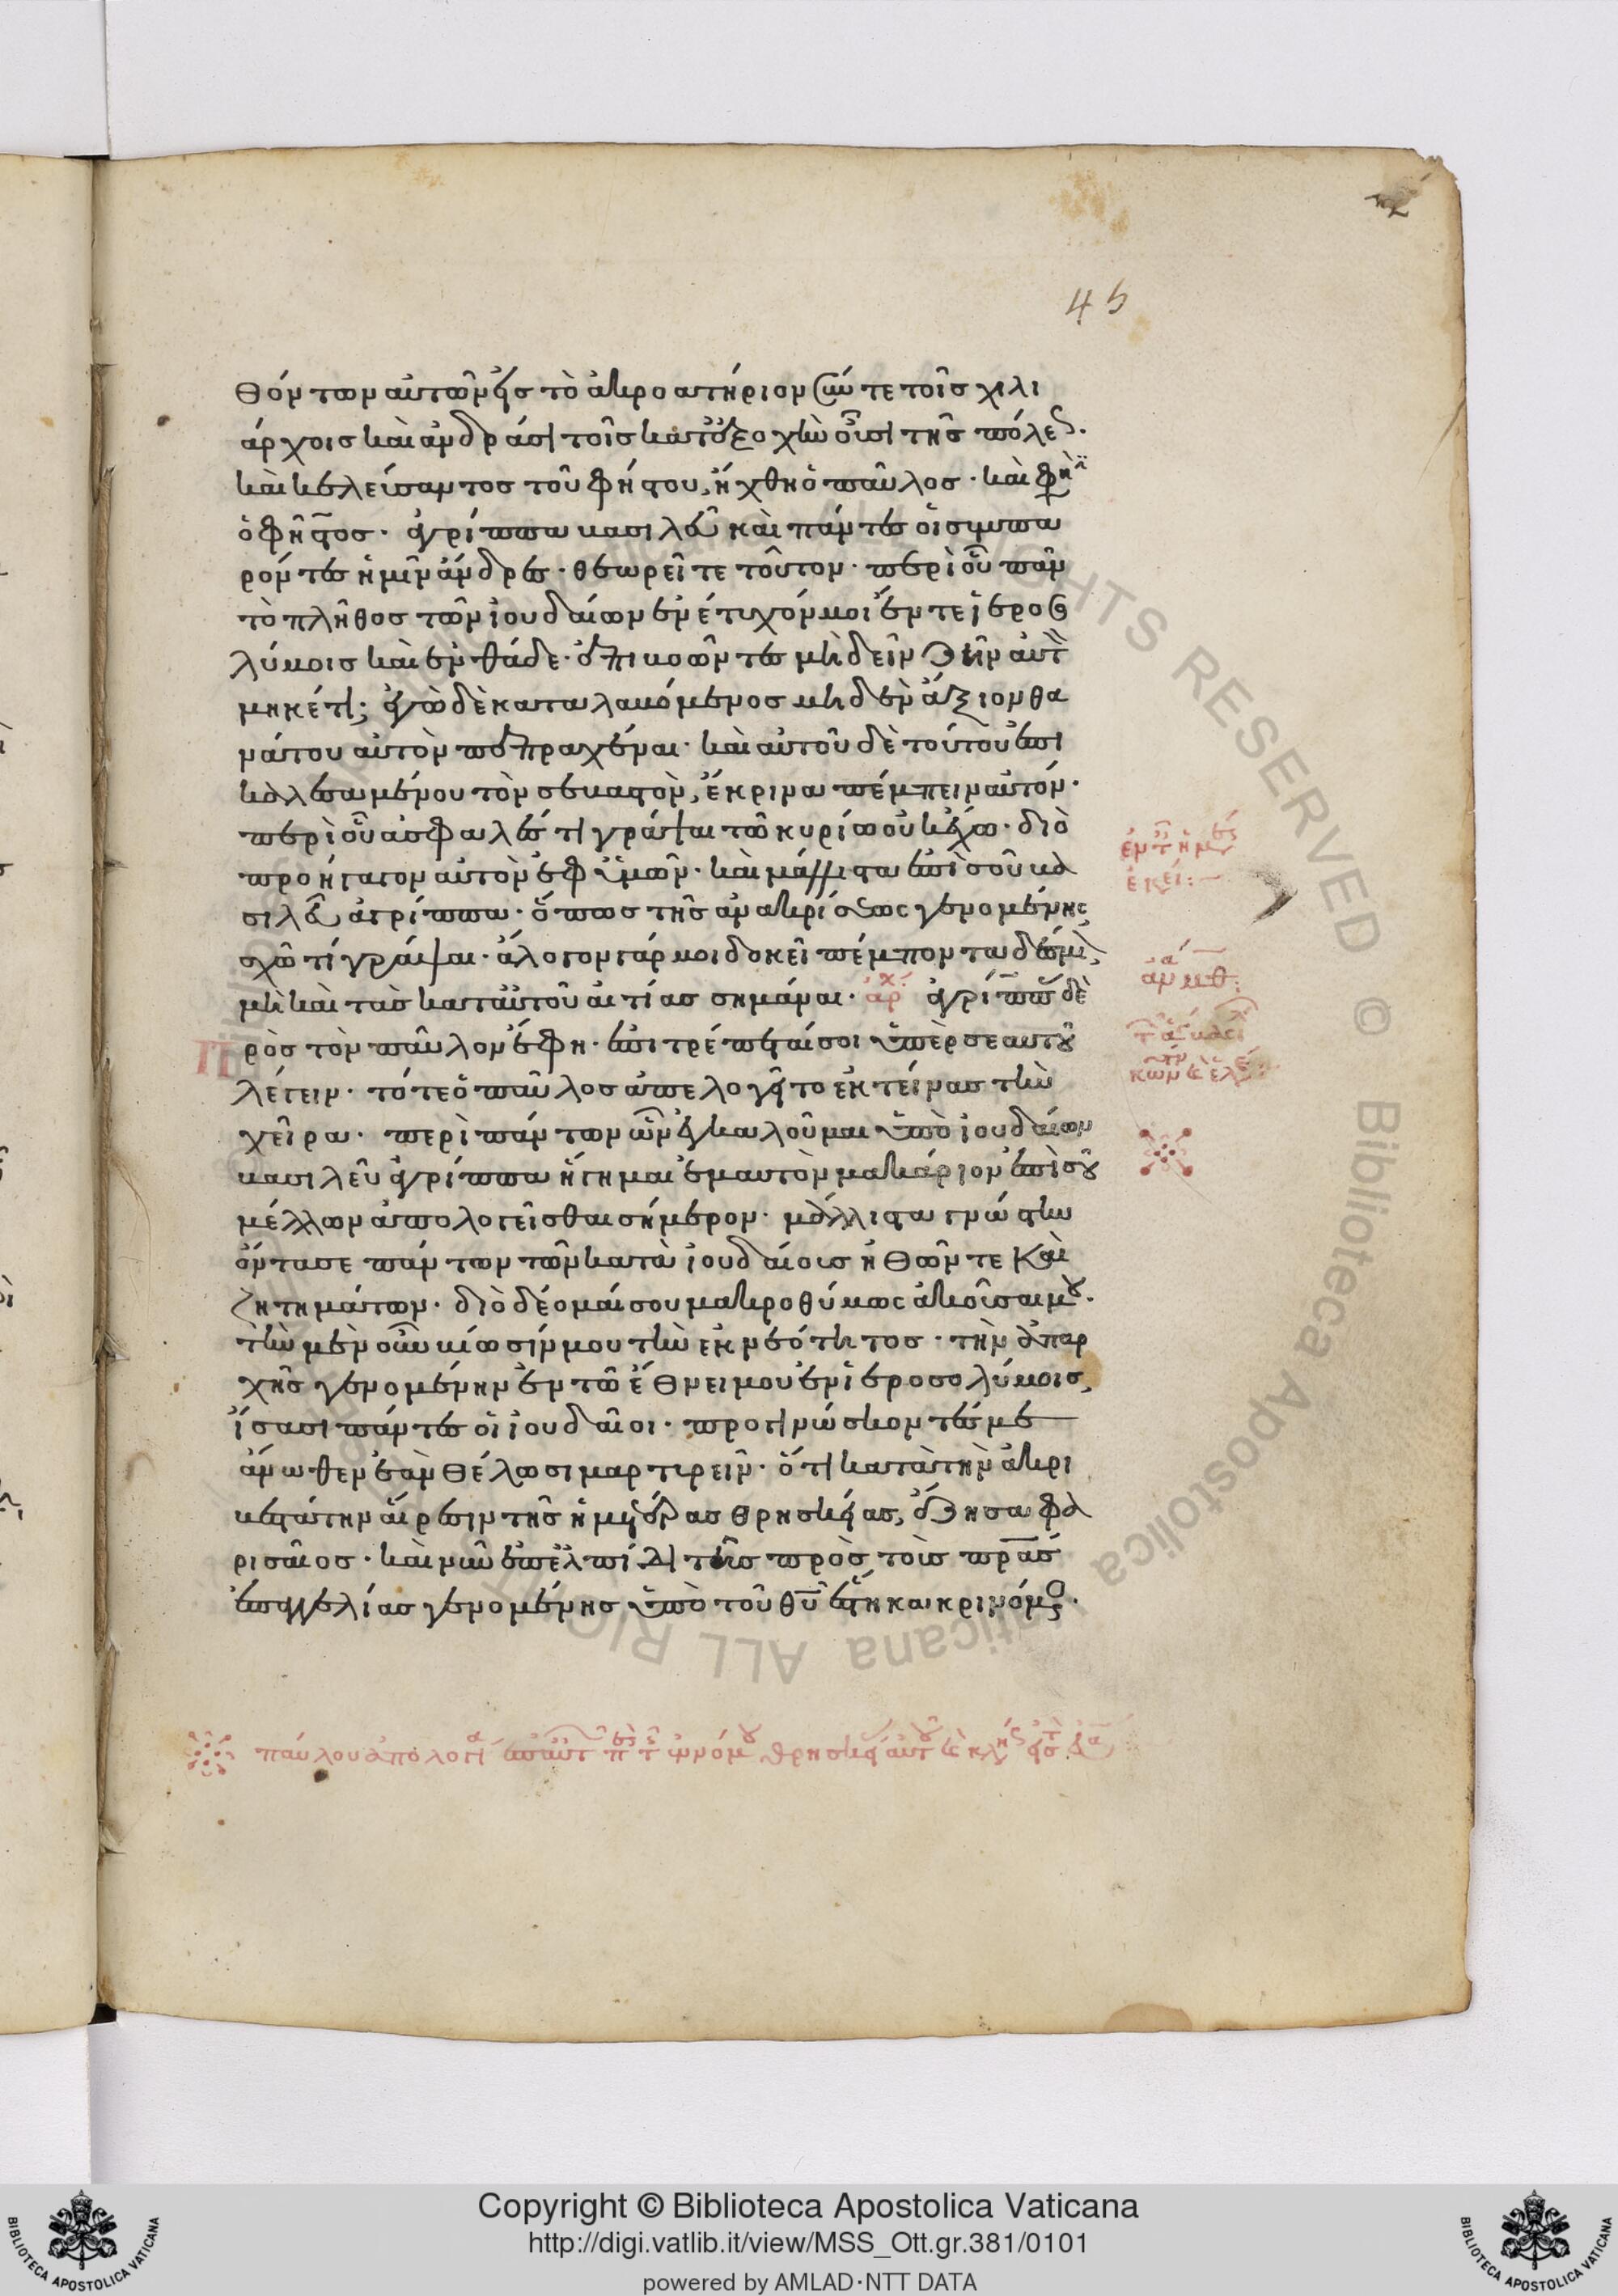 45
θόντων αὐτῶν εἰς τὸ ἀκροατήριον σύν τε τοῖς χιλι
άρχοις καὶ ἀνδράσι τοῖς κατ ἐξοχὴν οὖσι τῆς πόλεως.
καὶ κελεύσαντος τοῦ φήστου, ἤχθη ὁ παῦλος· καὶ φησὶ
ὁ φῆστος· ἀγρίππα βασιλεῦ καὶ πάντες οἱ συμπα
ρόντες ἡμῖν ἄνδρες· θεωρεῖτε τοῦτον· περὶ οὗ πᾶν
τὸ πλῆθος τῶν ἰουδαίων ἐνέτυχόν μοι ἔν τε ἱεροσο
λύμοις καὶ ἐνθάδε· ἐπιβοῶντες μὴ δεῖν ζῆν αὐτὸν
μηκέτι; ἐγὼ δὲ καταλαβόμενος μηδὲν ἄξιον θα
νάτου αὐτὸν πεπραχέναι· καὶ αὐτοῦ δὲ τούτου ἐπι
καλεσαμένου τὸν σεβαστὸν, ἔκρινα πέμπειν αὐτόν·
περὶ οὗ ἀσφαλές τι γράψαι τῶ κυρίω οὐκ ἔχω· διὸ
προήγαγον αὐτὸν ἐφ ὑμῶν· καὶ μάλιστα ἐπὶ σοῦ βα
σιλεῦ ἀγρίππα· ὅπως τῆς ἀνακρίσεως γενομένης
σχῶ τί γράψαι· ἄλογον γάρ μοι δοκεῖ πέμποντα δέσμιον,
μὴ καὶ τὰς κατ αὐτοῦ αἰτίας σημάναι· ἀρχ ἀγρίππας δὲ
πρὸς τὸν παῦλον ἔφη· ἐπιτρέπεταί σοι ὑπὲρ σεαυτοῦ
λέγειν· τότε ὁ παῦλος ἀπελογεῖτο ἐκτείνας τὴν
χεῖρα· περὶ πάντων ὧν ἐγκαλοῦμαι ὑπὸ ἰουδαίων
βασιλεῦ ἀγρίππα ἥγημαι ἐμαυτὸν μακάριον ἐπὶ σοῦ
μέλλων ἀπολογεῖσθαι σήμερον· μάλλιστα γνώστην
ὄντα σε πάντων τῶν κατὰ ἰουδαίοις ἠθῶν τε καὶ
ζητημάτων· διὸ δέομαί σου μακροθύμως ἀκοῦσαι μου·
τὴν μὲν οὖν βίωσίν μου τὴν ἐκ νεότητος· τὴν ἀπαρ
χῆς γενομένην ἐν τῶ ἔθνει μου ἐν ἱεροσολύμοις,
ἴσασι πάντες οἱ ἰουδαῖοι· προγινώσκοντές με
ἄνωθεν ἐὰν θέλωσι μαρτυρεῖν· ὅτι κατὰ τὴν ἀκρι
βεστάτην αἵρεσιν τῆς ἡμετέρας θρησκείας, ἔζησα φα
ρισαῖος· καὶ νῦν ἐπ ἐλπίδι τῆς πρὸς τοὺς πρας
ἐπαγγελίας γενομένης ὑπὸ τοῦ θυ ἕστηκα κρινόμενος·
Copyright © Biblioteca Apostolica Vaticana
http://digi.vatlib.it/view/MSS_Ott.gr.381/0101
powered by AMLAD·NTT DATA